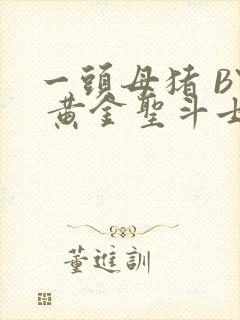 一頭母猪 BY
黄金聖斗士
董進訓